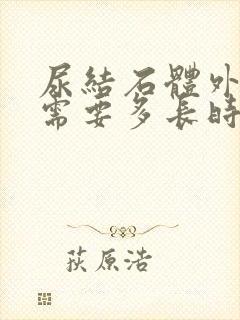 尿結石體外
需要多長時
荻原浩